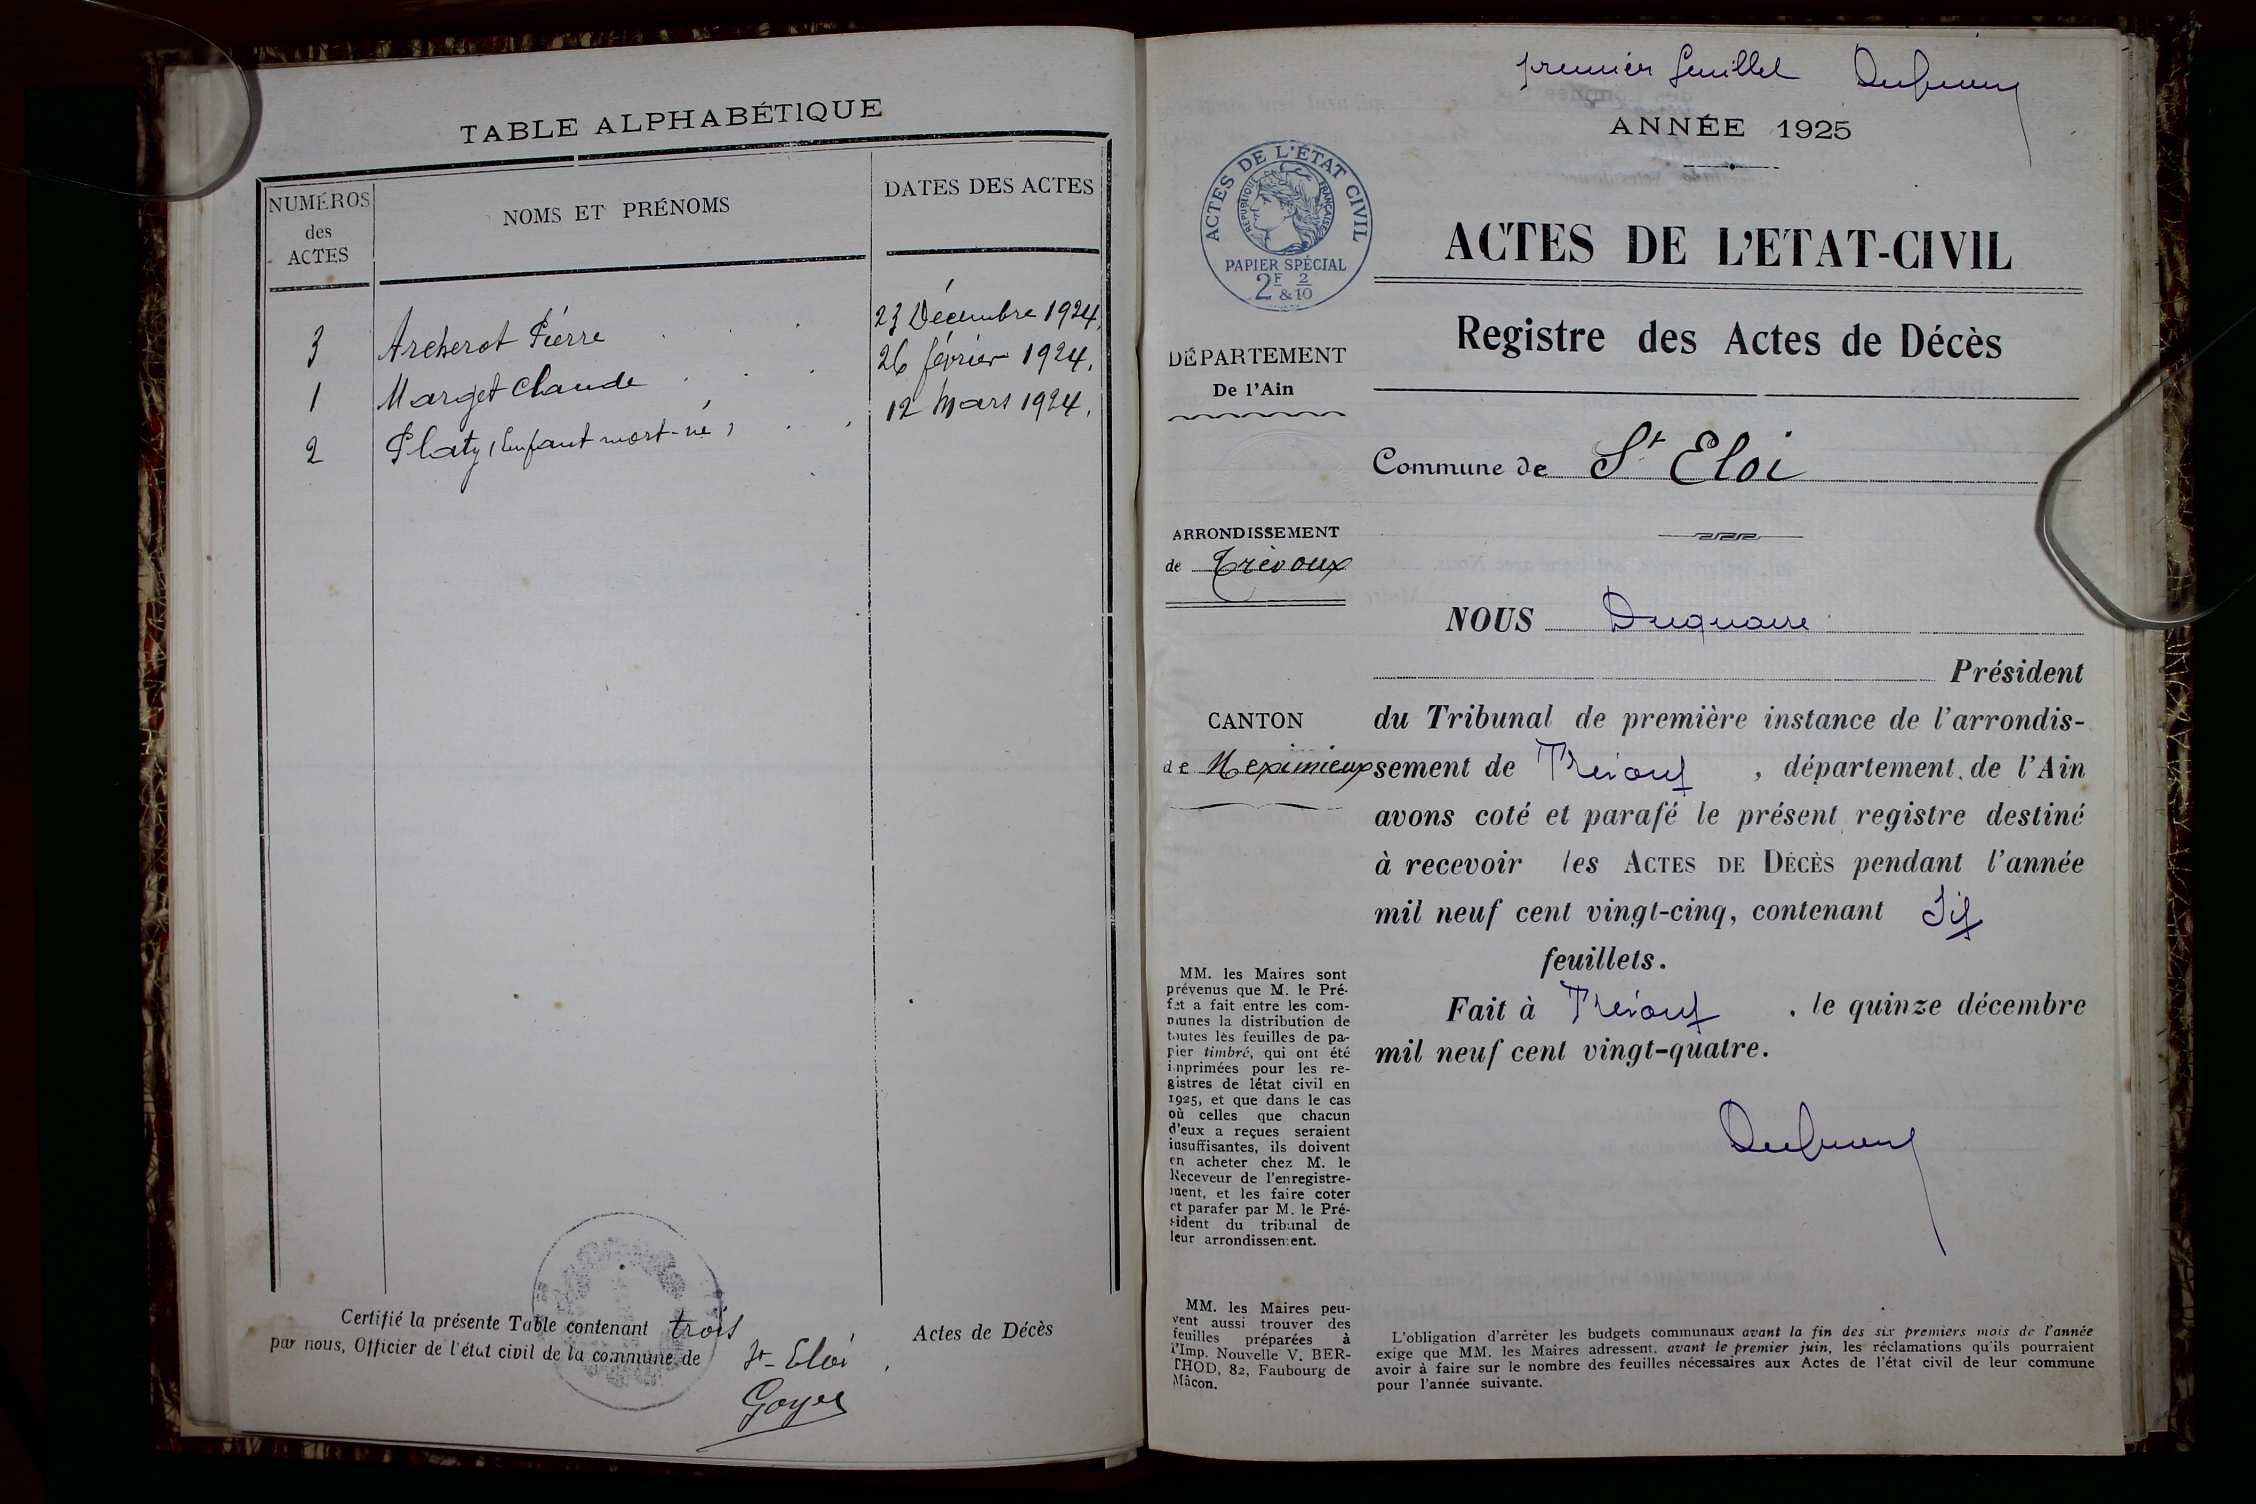 TABLE ALPHABÉTIQUE
NUMÉROS
des
ACTES
NOMS ET PRÉNOMS
DATES DES ACTES
3 Archerot Pierre 23 Décembre 1924.
1 Marget Claude 26 février 1924.
2 Platy (Enfant mort-né) 12 Mars 1924.
Certifié la présente Table contenant trois Actes de Décès
par nous, Officier de l'état civil de la commune de St-Eloi,
Goyer
premier feuillet
ANNÉE 1925
ACTES DE L'ÉTAT CIVIL
RÉPUBLIQUE FRANÇAISE
PAPIER SPÉCIAL
2F & 2/10
ACTES DE L'ETAT-CIVIL
Registre des Actes de Décès
DÉPARTEMENT
De l'Ain
Commune de St Eloi
ARRONDISSEMENT
de Trévoux
CANTON
de Meximieux
NOUS Duquaire
Président
du Tribunal de première instance de l'arrondis-
sement de Trévoux, département de l'Ain
avons coté et parafé le présent registre destiné
à recevoir les ACTES DE DÉCÈS pendant l'année
mil neuf cent vingt-cinq, contenant Six
feuillets.
Fait à Trévoux, le quinze décembre
mil neuf cent vingt-quatre.
MM. les Maires sont
prévenus que M. le Pré-
fet a fait entre les com-
munes la distribution de
toutes les feuilles de pa-
pier timbré, qui ont été
imprimées pour les re-
gistres de létat civil en
1925, et que dans le cas
où celles que chacun
d'eux a reçues seraient
insuffisantes, ils doivent
en acheter chez M. le
Receveur de l'enregistre-
ment, et les faire coter
et parafer par M. le Pré-
sident du tribunal de
leur arrondissement.
MM. les Maires peu-
vent aussi trouver des
feuilles préparées à
l'Imp. Nouvelle V. BER-
THOD, 82, Faubourg de
Mâcon.
L'obligation d'arrêter les budgets communaux avant la fin des six premiers mois de l'année
exige que MM. les Maires adressent, avant le premier juin, les réclamations qu'ils pourraient
avoir à faire sur le nombre des feuilles nécessaires aux Actes de l'état civil de leur commune
pour l'année suivante.